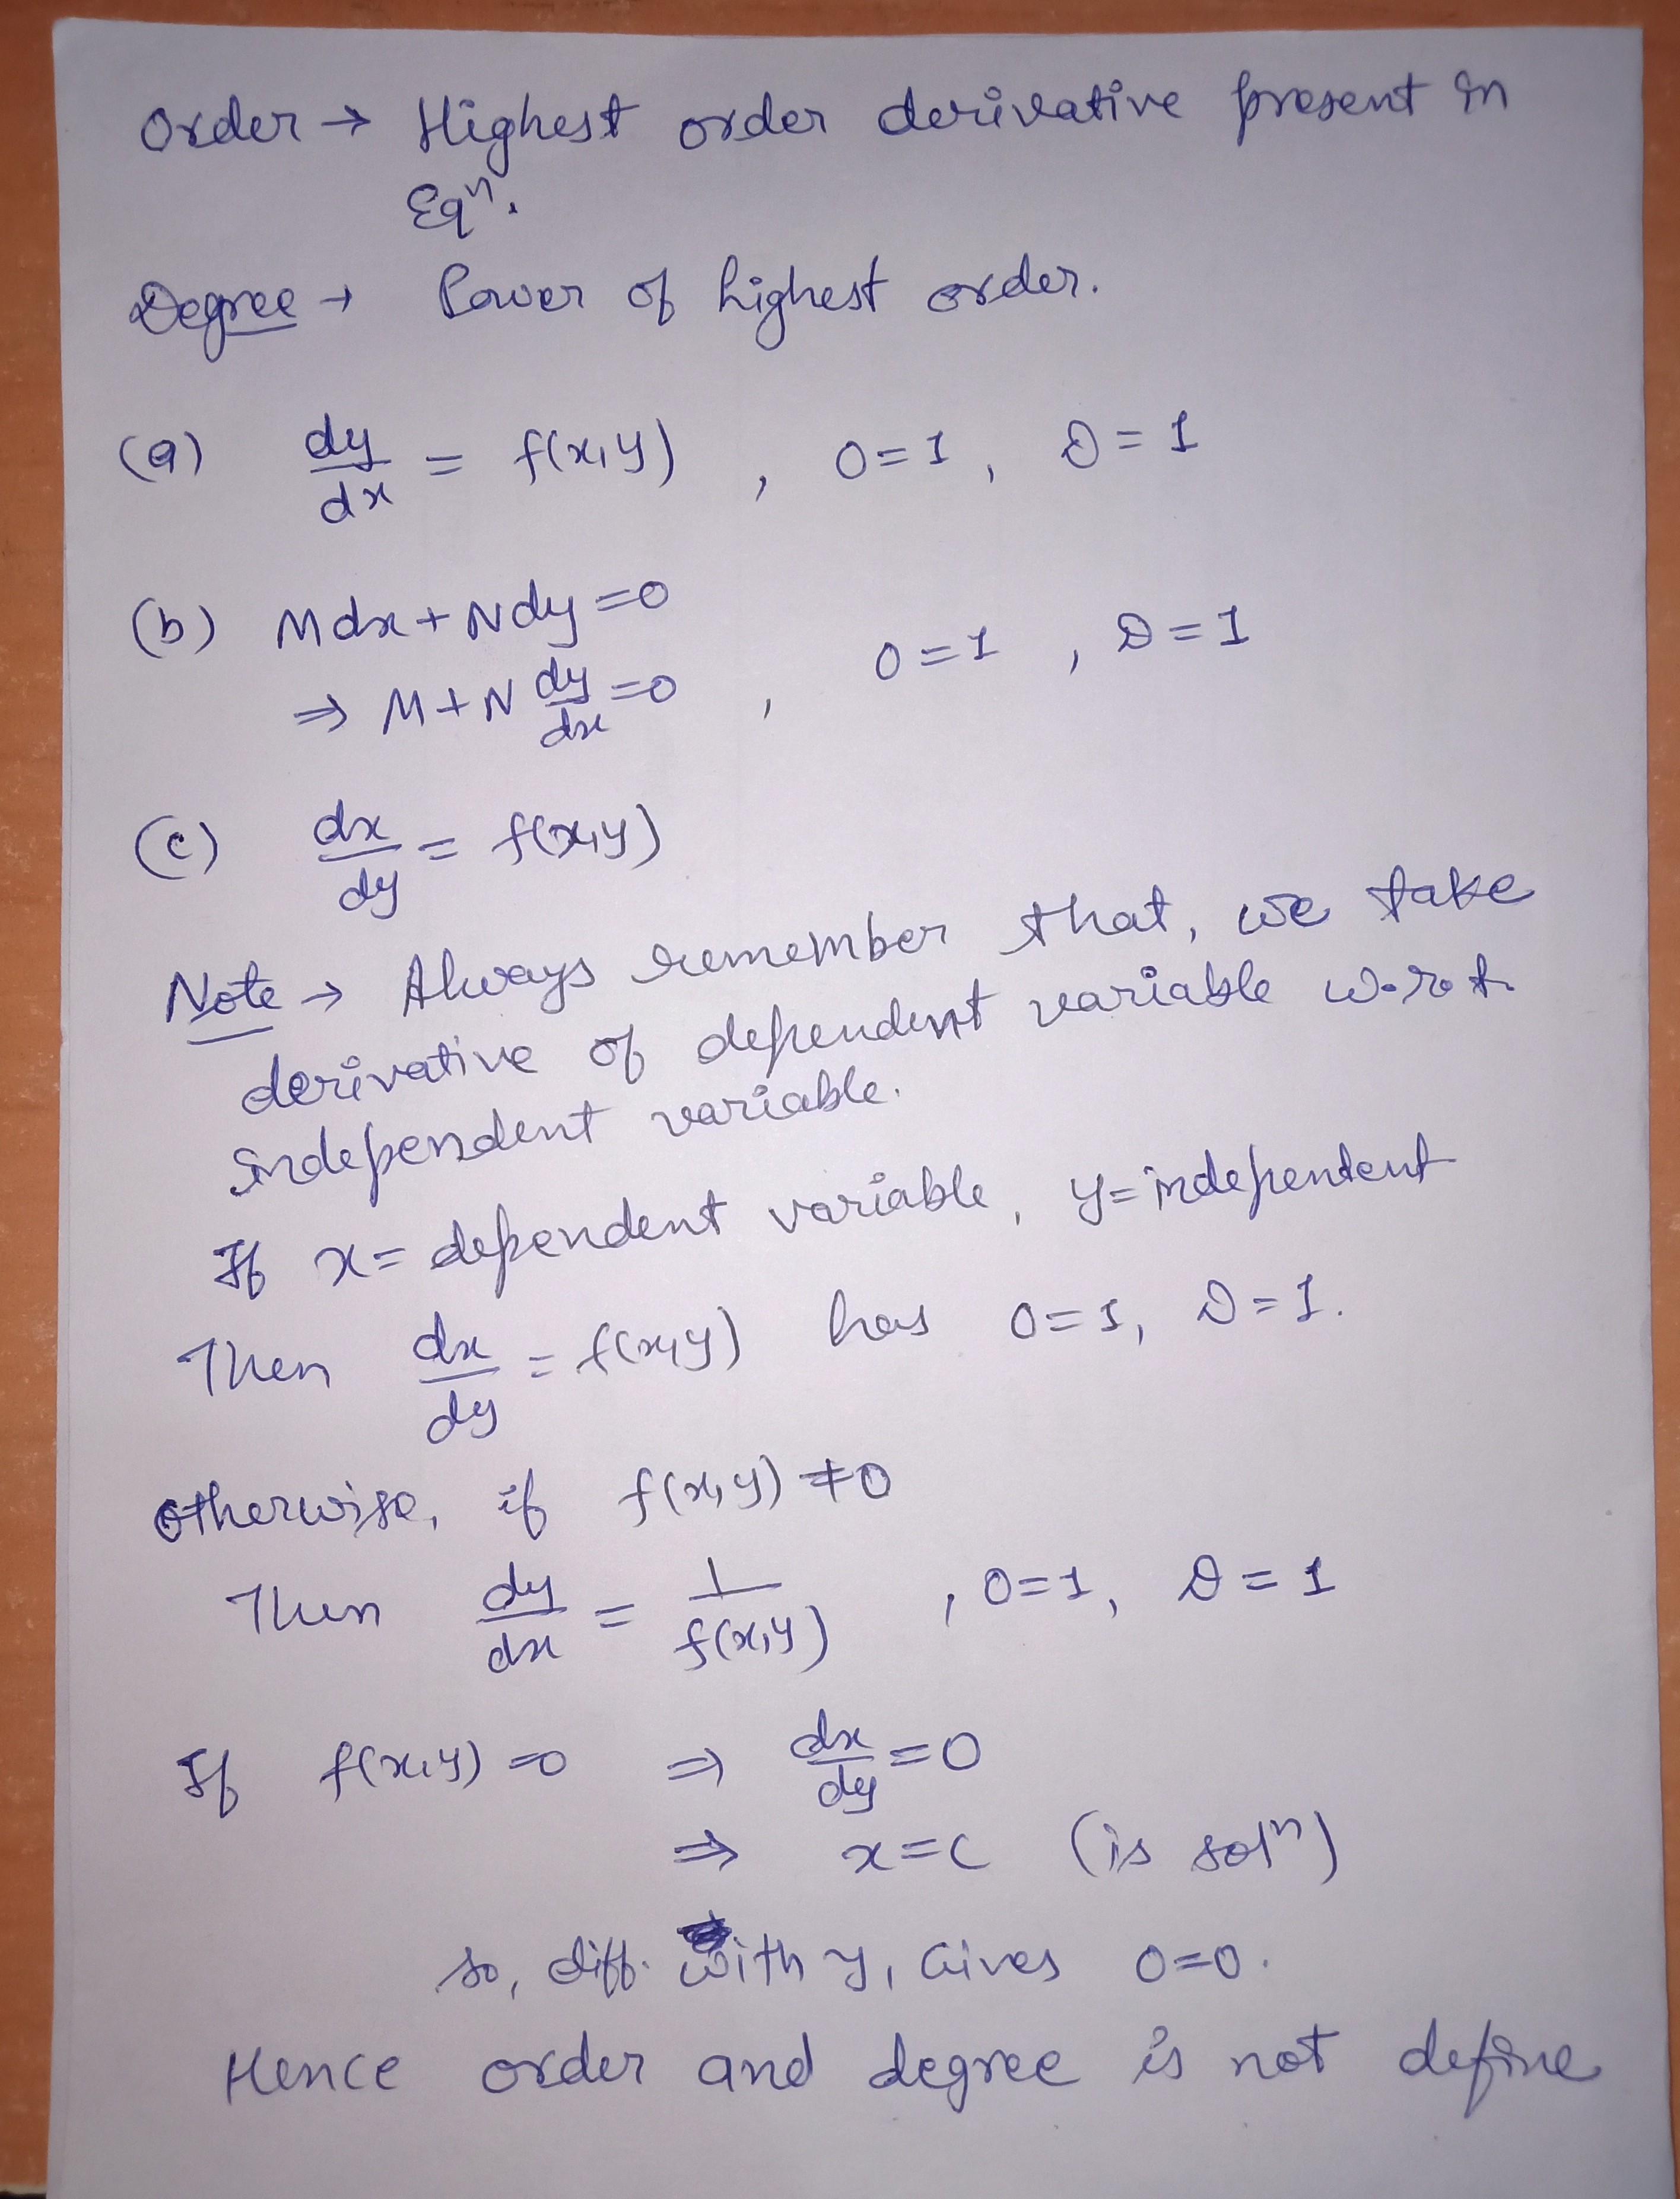 Order → Highest order derivative present in
Eqⁿ.
Degree → Power of highest order.
(a) dy/dx = f(x,y) , O=1, D=1
(b) Mdx+Ndy=0
⇒ M+N dy/dx =0 , O=1 , D=1
(c) dx/dy = f(x,y)
Note → Always remember that, we take
derivative of dependent variable w.r.t.
independent variable.
If x= dependent variable, y=independent
Then dx/dy = f(x,y) has O=1, D=1.
Otherwise, if f(x,y) ≠0
Then dy/dx = 1/f(x,y) , O=1, D=1
If f(x,y)=0 ⇒ dx/dy =0
⇒ x=c (is solⁿ)
so, diff. with y, Gives 0=0.
Hence order and degree is not define